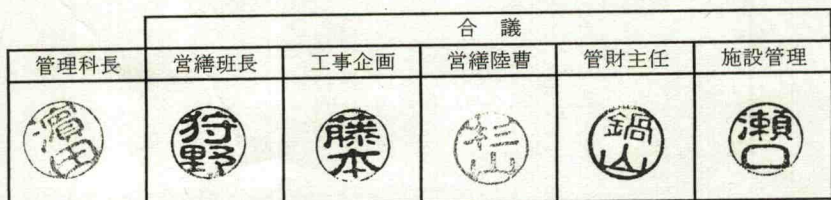 合議
管理科長 営繕班長 工事企画 営繕陸曹 管財主任 施設管理
濱田 狩野 藤本 杉山 鍋山 瀬口